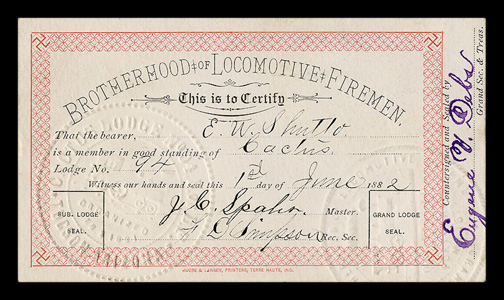 BROTHERHOOD OF LOCOMOTIVE FIREMEN.
This is to Certify
That the bearer, E. W. Shutto.
is a member in good standing of Cactus.
Lodge No. 94
Witness our hands and seal this 1st day of June 1882
J. C. Spahr. Master.
F. G. Simpson Rec. Sec.
SUB. LODGE
SEAL.
GRAND LODGE
SEAL.
MOORE & LANGEN, PRINTERS, TERRE HAUTE, IND.
Countersigned and Sealed by
Eugene V. Debs
Grand Sec. & Treas.